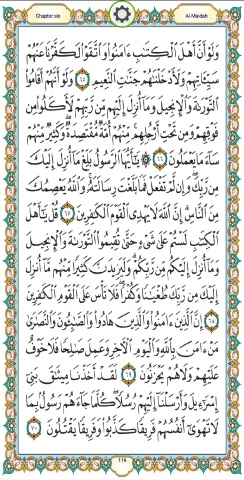 Chapter six
Al-Maidah
وَلَوْ أَنَّ أَهْلَ الْكِتَابِ ءَامَنُوا وَاتَّقَوْا لَكَفَّرْنَا عَنْهُمْ
سَيِّئَاتِهِمْ وَلَأَدْخَلْنَاهُمْ جَنَّاتِ النَّعِيمِ ٦٥ وَلَوْ أَنَّهُمْ أَقَامُوا
التَّوْرَاةَ وَالْإِنجِيلَ وَمَا أُنزِلَ إِلَيْهِم مِّن رَّبِّهِمْ لَأَكَلُوا مِن
فَوْقِهِمْ وَمِن تَحْتِ أَرْجُلِهِم مِّنْهُمْ أُمَّةٌ مُّقْتَصِدَةٌ وَكَثِيرٌ مِّنْهُمْ
سَاءَ مَا يَعْمَلُونَ ٦٦ يَا أَيُّهَا الرَّسُولُ بَلِّغْ مَا أُنزِلَ إِلَيْكَ
مِن رَّبِّكَ وَإِن لَّمْ تَفْعَلْ فَمَا بَلَّغْتَ رِسَالَتَهُ وَاللَّهُ يَعْصِمُكَ
مِنَ النَّاسِ إِنَّ اللَّهَ لَا يَهْدِي الْقَوْمَ الْكَافِرِينَ ٦٧ قُلْ يَا أَهْلَ
الْكِتَابِ لَسْتُمْ عَلَى شَيْءٍ حَتَّى تُقِيمُوا التَّوْرَاةَ وَالْإِنجِيلَ
وَمَا أُنزِلَ إِلَيْكُم مِّن رَّبِّكُمْ وَلَيَزِيدَنَّ كَثِيرًا مِّنْهُم مَّا أُنزِلَ
إِلَيْكَ مِن رَّبِّكَ طُغْيَانًا وَكُفْرًا فَلَا تَأْسَ عَلَى الْقَوْمِ الْكَافِرِينَ
٦٨ إِنَّ الَّذِينَ ءَامَنُوا وَالَّذِينَ هَادُوا وَالصَّابِئُونَ وَالنَّصَارَى
مَنْ ءَامَنَ بِاللَّهِ وَالْيَوْمِ الْآخِرِ وَعَمِلَ صَالِحًا فَلَا خَوْفٌ
عَلَيْهِمْ وَلَا هُمْ يَحْزَنُونَ ٦٩ لَقَدْ أَخَذْنَا مِيثَاقَ بَنِي
إِسْرَائِيلَ وَأَرْسَلْنَا إِلَيْهِمْ رُسُلًا كُلَّمَا جَاءَهُمْ رَسُولٌ بِمَا
لَا تَهْوَى أَنفُسُهُمْ فَرِيقًا كَذَّبُوا وَفَرِيقًا يَقْتُلُونَ ٧٠
119